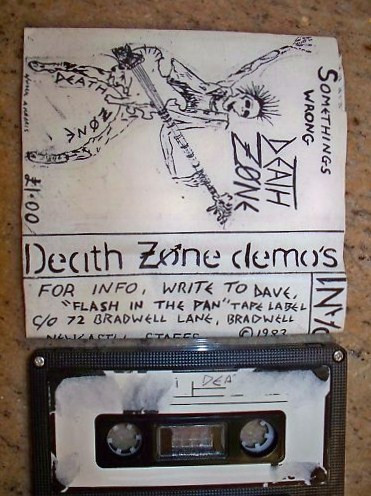 SOMETHINGS
WRONG
DEATH
ZONE
DEATH
ZONE
£1.00
Death Zone demo's
FOR INFO, WRITE TO DAVE,
"FLASH IN THE PAN" TAPE LABEL
C/O 72 BRADWELL LANE, BRADWELL
NEWCASTLE STAFFS
© 1983
DEA